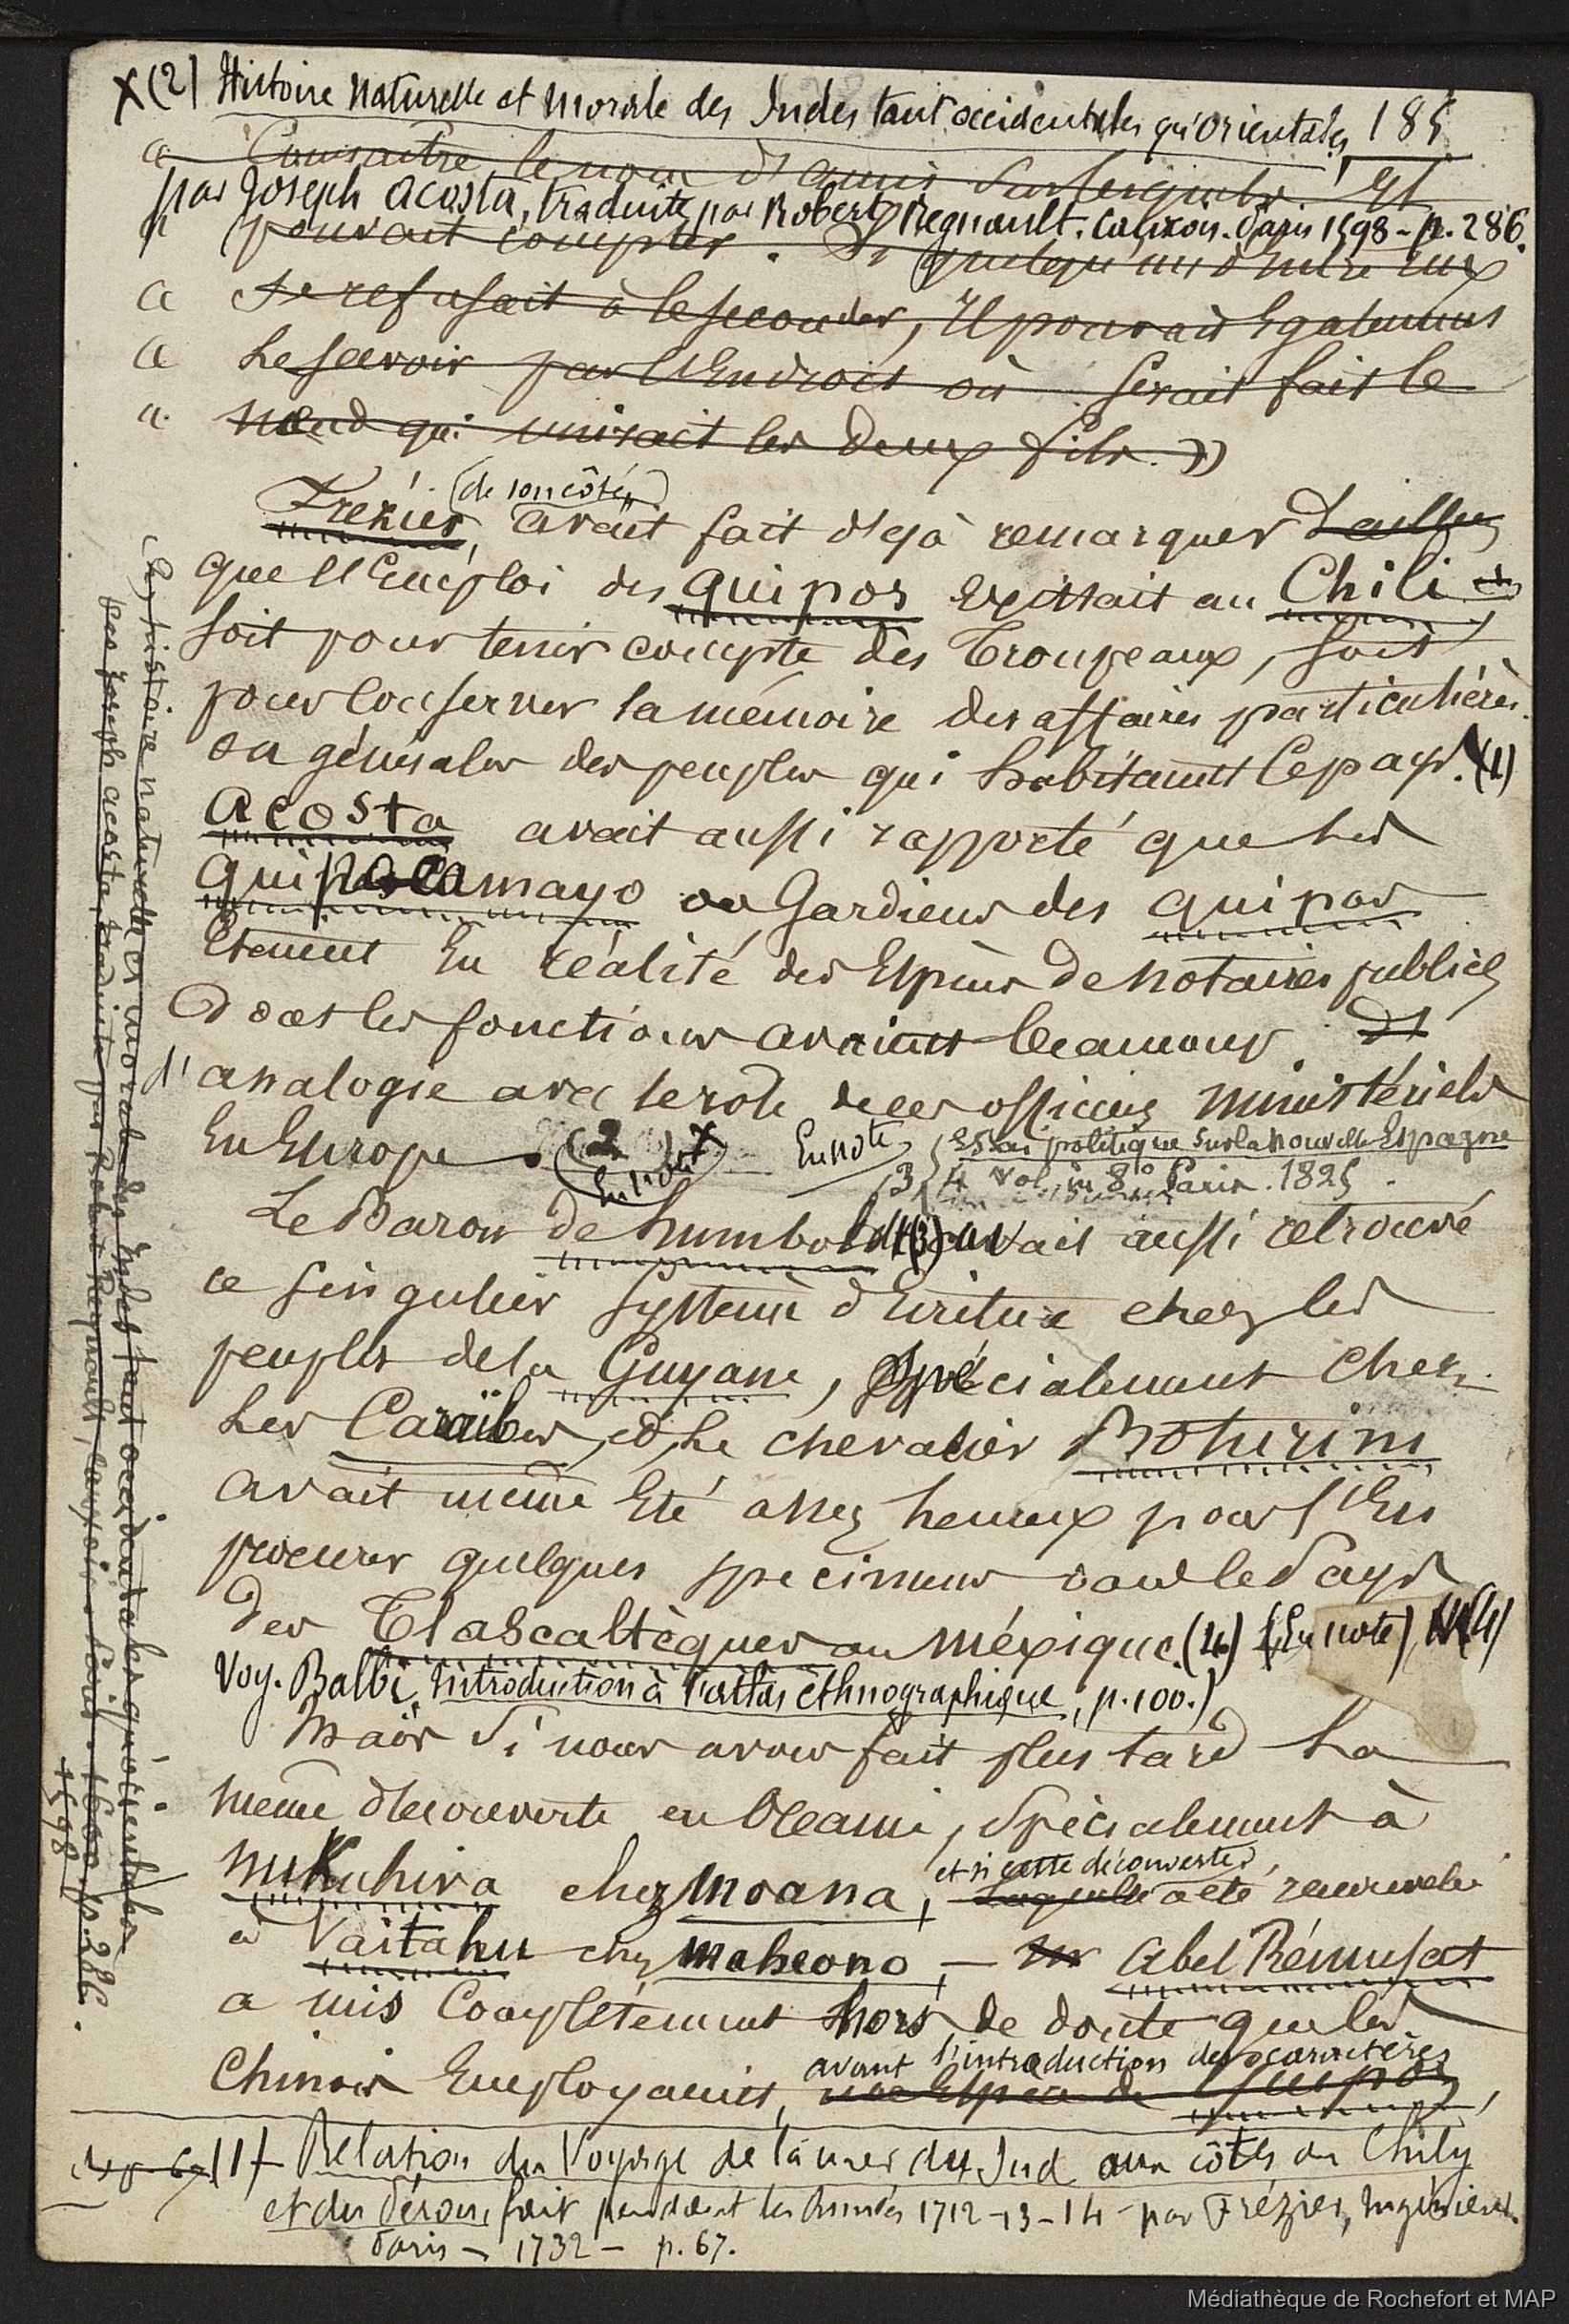 X (2) Histoire Naturelle et Morale des Indes tant occidentales qu'orientales, 185
« Connaître le nom d'amis sur lesquels Il
par Joseph Acosta, traduite par Robert Regnault. Cauxois. Paris 1598 - p. 286.
« pouvait compter. Si quelqu'un d'entre eux
« se refusait à le seconder, Il pouvait Egalement
« le savoir par l'Endroit où serait fait le
« nœud qui unirait les deux fils. »
Frézier, (de son côté,) avait fait déjà remarquer d'ailleurs
que l'Emploi des quipos Existait au Chili
soit pour tenir compte des Troupeaux, soit
pour Conserver la mémoire des affaires particulières
ou générales des peuples qui habitaient le pays. (1)
Acosta avait aussi rapporté que les
quipocamayo ou Gardiens des quipos
Etaient En réalité des Espèces de notaires publics
dont les fonctions avaient beaucoup
d'analogie avec le rôle de ces officiers ministériels
En Europe. (2) X (En note)
En note (3) Essai politique sur la nouvelle Espagne
4 vol. in 8° Paris. 1825.
Le Baron de humboldt (3) avait aussi retrouvé
ce singulier système d'Ecriture chez les
peuples de la Guyane, spécialement chez
les Caraïbes, et le chevalier Boturini
avait même Eté assez heureux pour s'En
procurer quelques specimens dans le Pays
des Tlascaltèques au Méxique. (4) (En note) (4)
Voy. Balbi, Introduction à l'atlas éthnographique, p. 100.)
Mais Si nous avons fait plus tard la
même découverte en Océanie, Spécialement à
Nukuhiva chez Moana, et si cette découverte a été renouvelée
à Vaitahu chez Maheono, — Abel Rémusat
a mis Complètement hors de doute que les
Chinois Employaient, avant l'introduction des caractères
une Espèce de quipos,
(1) Relation du Voyage de la mer du Sud aux côtes du Chily
et du Pérou, fait pendant les Années 1712-13-14 par Frézier, Ingénieur.
Paris — 1732 — p. 67.
histoire naturelle et morale des Indes tant occidentales qu'orientales
par Joseph acosta, traduite par Robert Regnault, cauxois - Paris. 1600. p. 286.
1598
Médiathèque de Rochefort et MAP